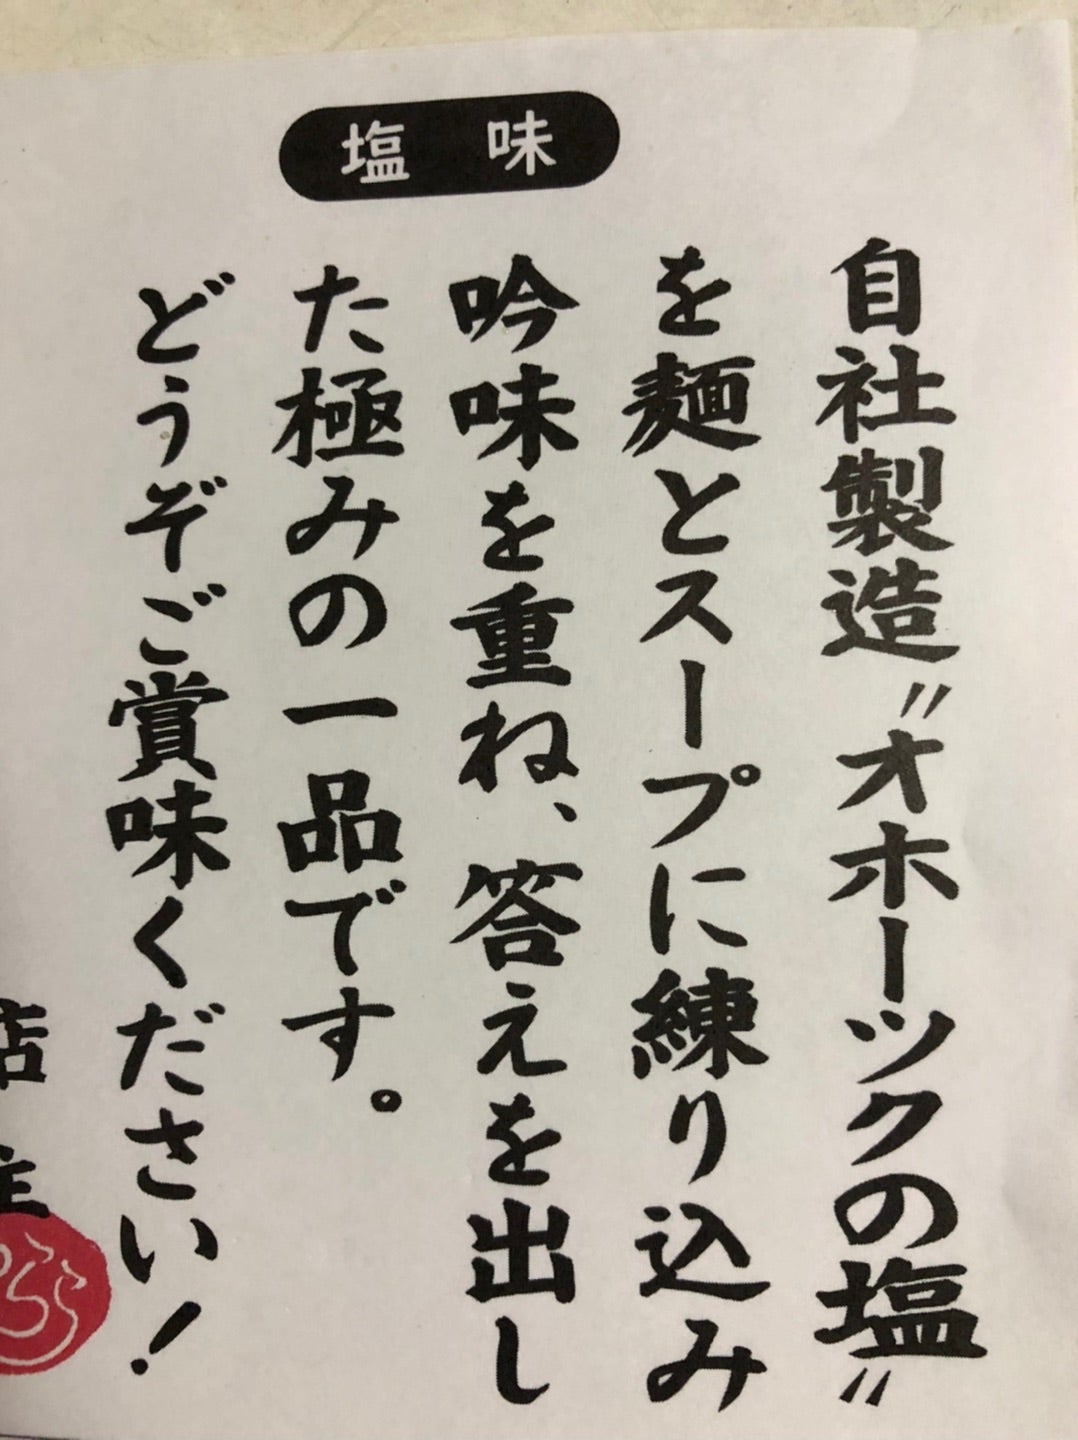 塩味
自社製造〝オホーツクの塩〟
を麺とスープに練り込み
吟味を重ね、答えを出し
た極みの一品です。
どうぞご賞味ください！
店主